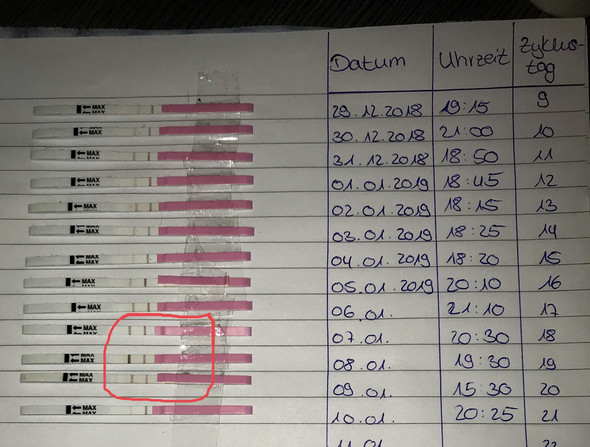 Datum Uhrzeit Zyklus-
tag
← MAX 29.12.2018 19:15 9
← MAX 30.12.2018 21:00 10
← MAX 31.12.2018 18:50 11
← MAX 01.01.2019 18:45 12
← MAX 02.01.2019 18:15 13
← MAX 03.01.2019 18:25 14
← MAX 04.01.2019 18:20 15
← MAX 05.01.2019 20:10 16
← MAX 06.01. 21:10 17
← MAX 07.01. 20:30 18
← MAX 08.01. 19:30 19
← MAX 09.01. 15:30 20
← MAX 10.01. 20:25 21